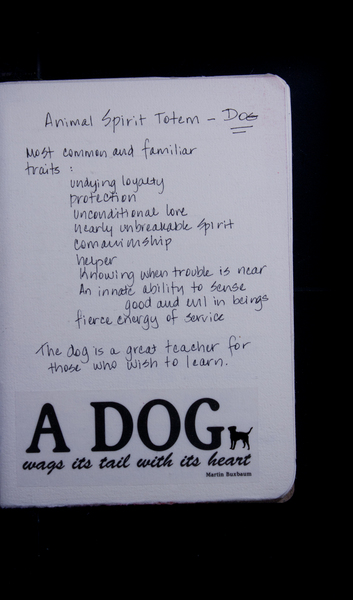 Animal Spirit Totem - Dog
Most common and familiar
traits :
undying loyalty
protection
unconditional love
nearly unbreakable spirit
comainmship
helper
Knowing when trouble is near
An innate ability to sense
good and evil in beings
fierce energy of service
The dog is a great teacher for
those who wish to learn.
A DOG
wags its tail with its heart
Martin Buxbaum